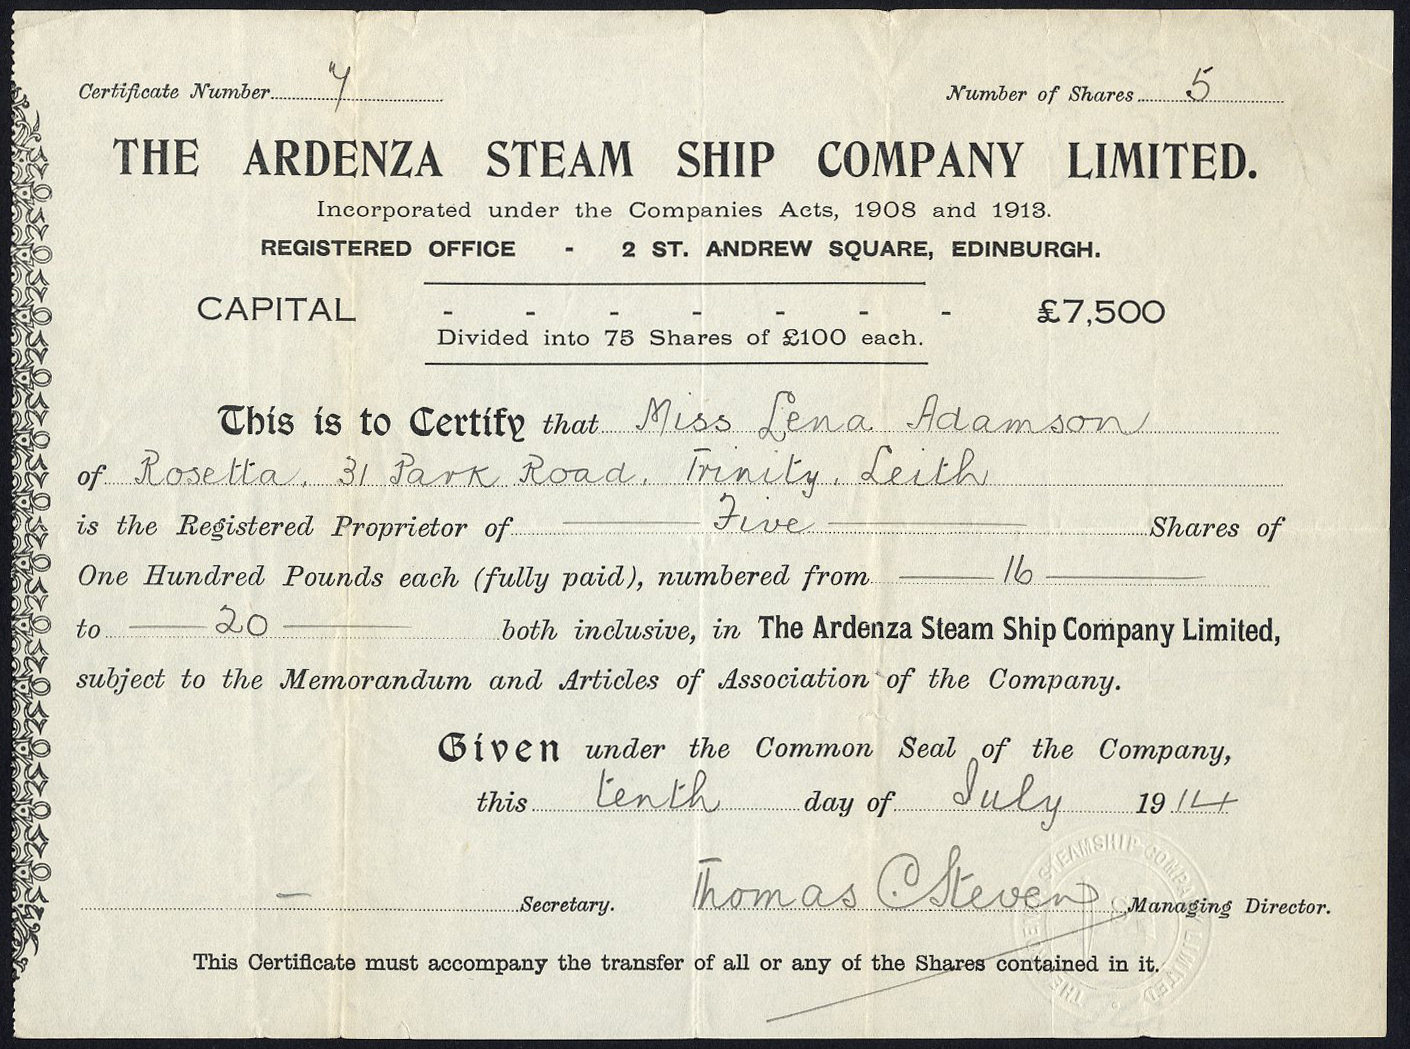 Certificate Number 7 Number of Shares 5
THE ARDENZA STEAM SHIP COMPANY LIMITED.
Incorporated under the Companies Acts, 1908 and 1913.
REGISTERED OFFICE - 2 ST. ANDREW SQUARE, EDINBURGH.
CAPITAL - - - - - - - £7,500
Divided into 75 Shares of £100 each.
This is to Certify that Miss Lena Adamson
of Rosetta, 31 Park Road, Trinity, Leith
is the Registered Proprietor of Five Shares of
One Hundred Pounds each (fully paid), numbered from 16
to 20 both inclusive, in The Ardenza Steam Ship Company Limited,
subject to the Memorandum and Articles of Association of the Company.
Given under the Common Seal of the Company,
this tenth day of July 1914
— Secretary. Thomas C Steven Managing Director.
THE ARDENZA STEAMSHIP COMPANY LIMITED
This Certificate must accompany the transfer of all or any of the Shares contained in it.